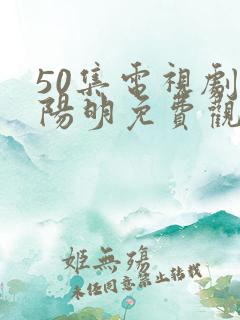 50集電視劇
陽明免費觀
姬無殤
未经同意禁止转载